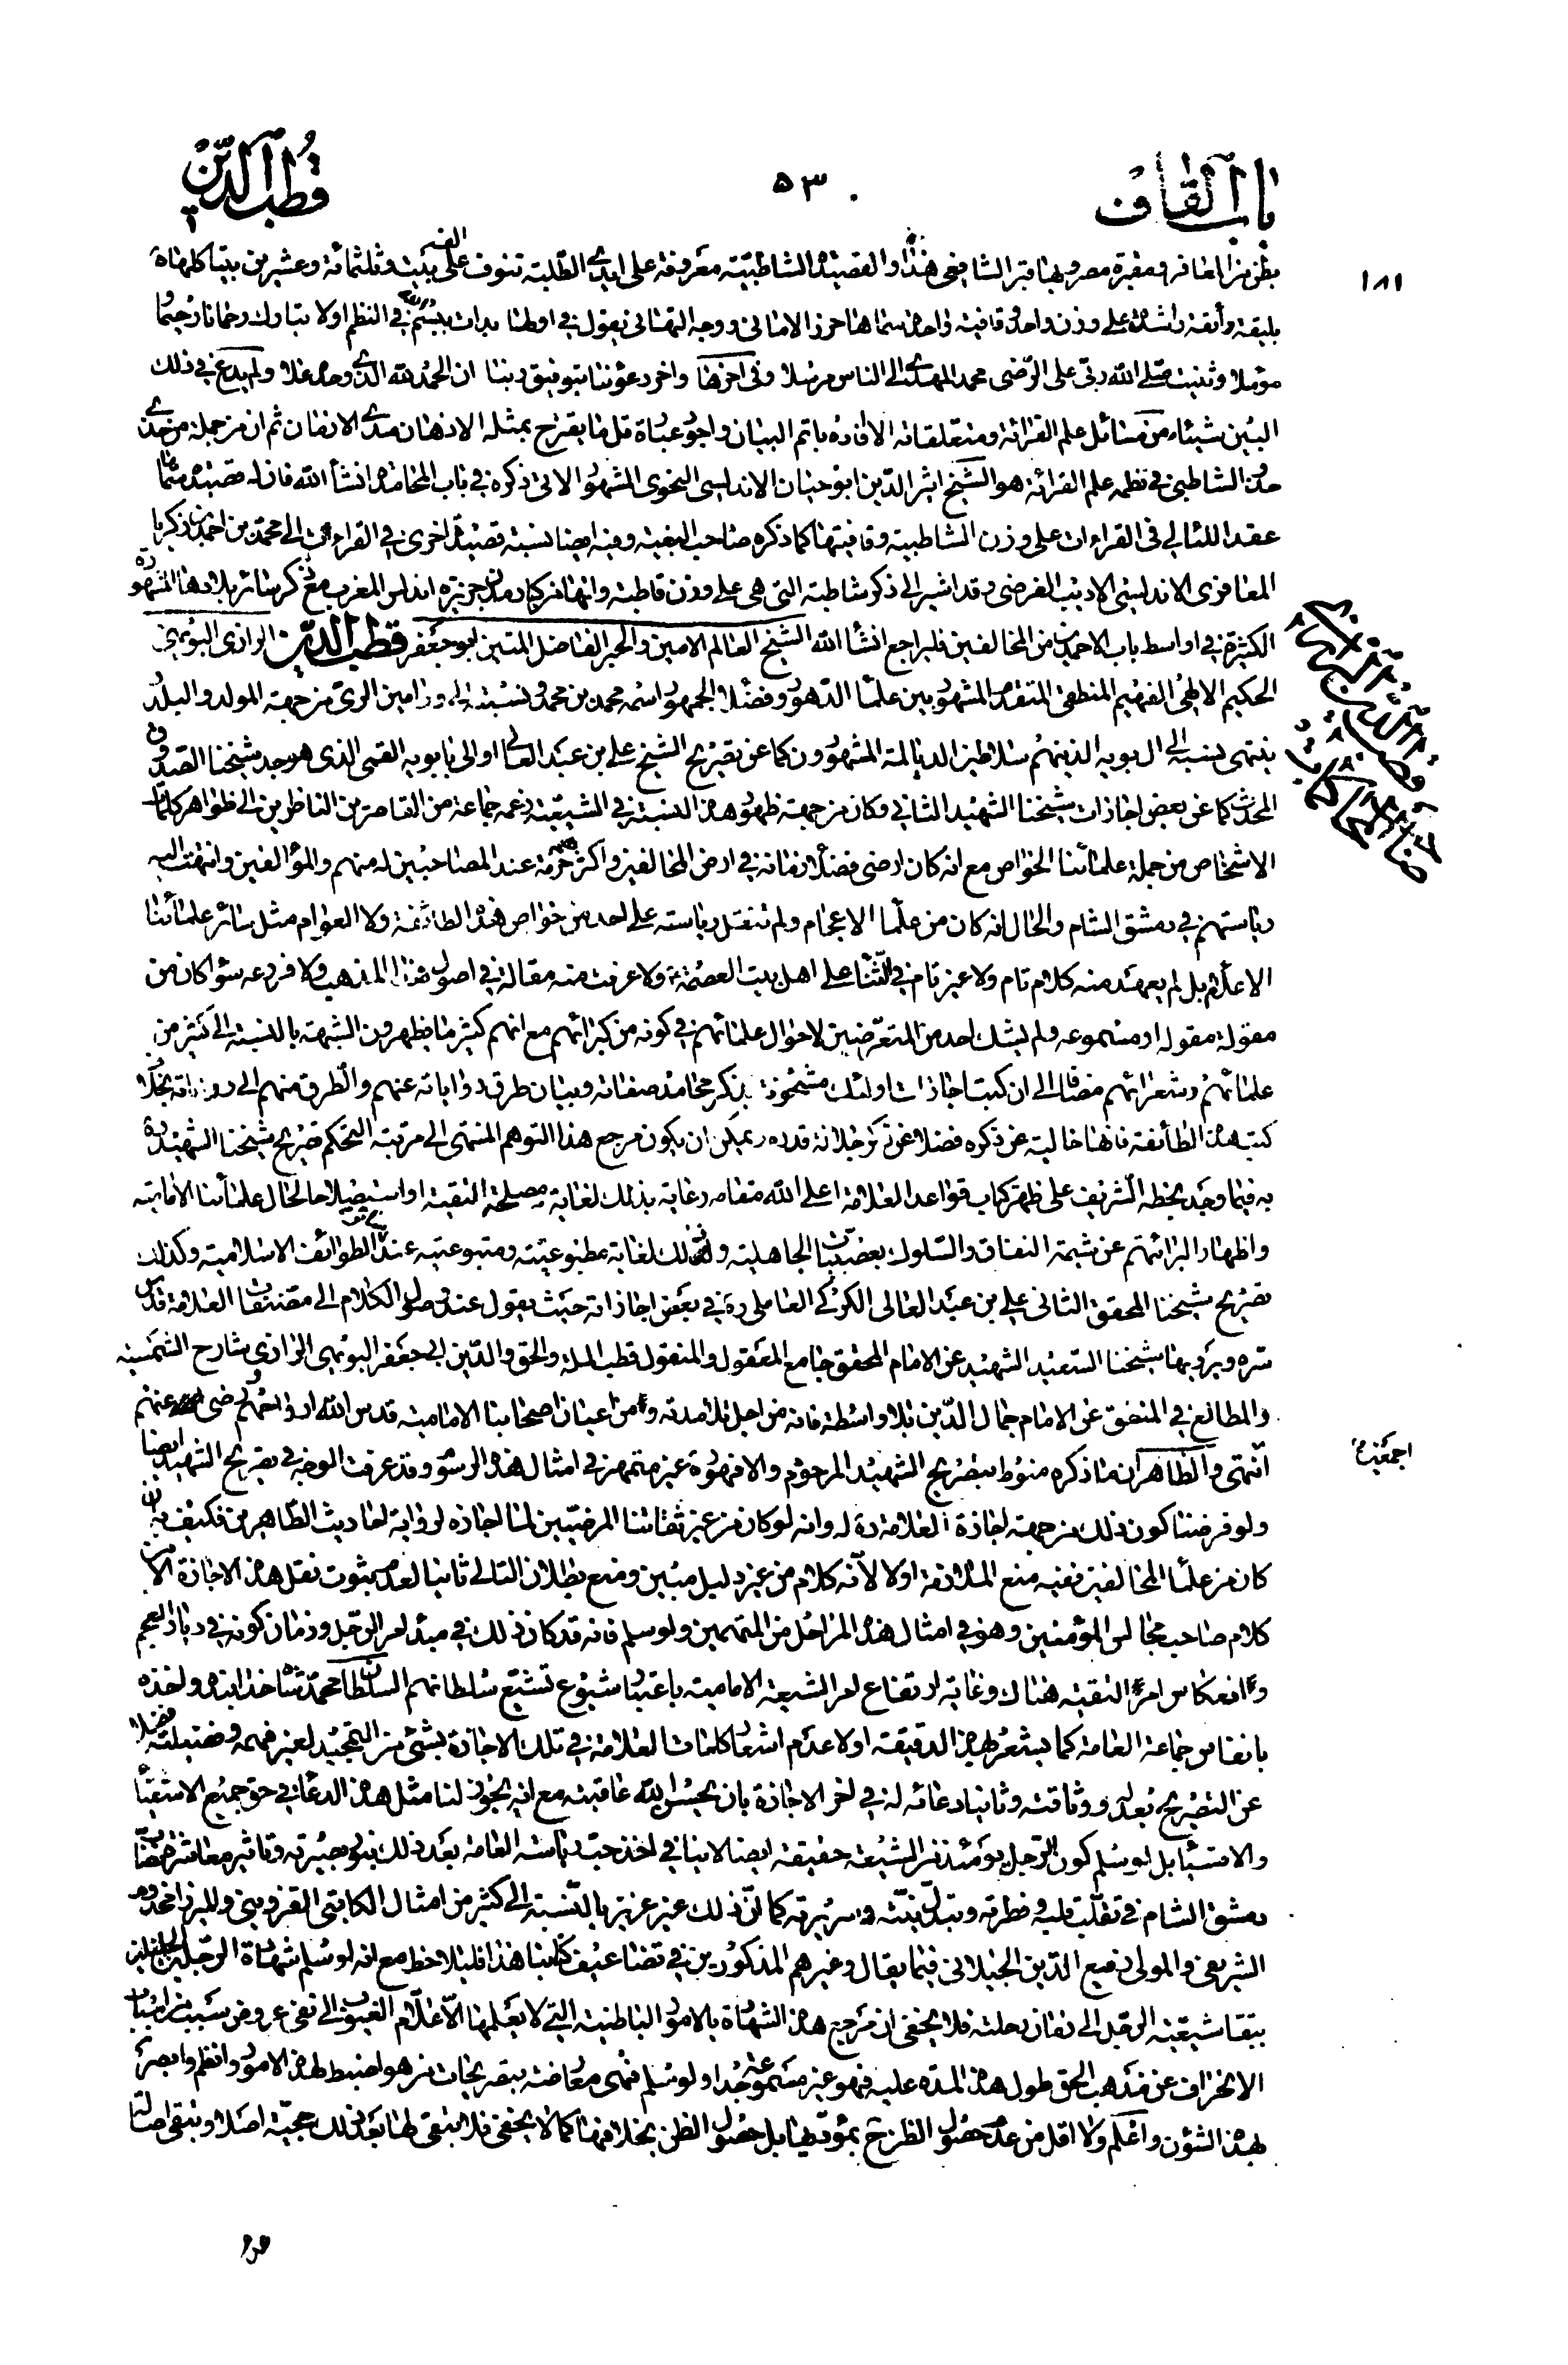 باب القاف
٥٣
قطب الدين
بطن من المعافر ومقبرة مصر وبها قبر الشافعي هذا والقصيدة الشاطبية معروفة على ايدي الطلبة تنوف على بيت وثلثمائة وعشرين بيتا كلها
بليقة وأنقة وانشدة على وزن واحد وقافية واحدة سماها حرز الاماني ووجه التهاني يقول في اولها بدأت ببسم الله في النظم اولا تبارك رحمانا رحيما و
موئلا وثنيت صلى الله ربي على الرضى محمد المهدى الى الناس مرسلا وفي اخرها واخر دعونا بتوفيق ربنا ان الحمد لله الذي وحده علا ولم يدع في ذلك
البين شيئا من مسائل علم القرائة ومتعلقاته الا افاده باتم البيان واجود عبارة قل ما يقترح بمثله الاذهان مدى الازمان ثم ان من جملة من حذى
حذو الشاطبي في نظمه علم القرائة هو الشيخ اثير الدين ابو حيان الاندلسي النحوي المشهور الاتي ذكره في باب المحامدة انشأ الله فان له قصيدة سماها
عقد اللئالي في القراءات على وزن الشاطبية وقافيتها كما ذكره صاحب البغية وفيه ايضا نسبة قصيدة اخرى في القراءات الى محمد بن احمد بن زكريا
المعافري الاندلسي الاديب الفرضي وقد اشير الى ذكر شاطبة التي هي على وزن قاطبة وانها من كبار مدن جزيرة اندلس المغرب مع ذكر سائر بلادها المشهورة
الكثيرة في اواسط باب الاحمدين من المخالفين فليراجع انشأ الله الشيخ العالم الامين والحبر الفاضل المتين ابو جعفر قطب الدين الرازي البويهي
الحكيم الالهي الفهيم المنطقي المتقدم المشهور بين علما الدهور وفضلا الجمهور اسمه محمد بن محمد ونسبته الى ورامين الري من جهة المولد والبلد و
ينتهى نسبه الى ال بويه الذين هم سلاطين الديالمة المشهورون كما عن تصريح الشيخ علي بن عبد العالي او الى بابويه القمي الذي هو جد شيخنا الصدوق
المحدث كما عن بعض اجازات شيخنا الشهيد الثاني وكان من جهة ظهور هذه النسبة في الشيعية زعمه جماعة من القاصرين الناظرين الى ظواهر كلمات
الاشخاص من جملة علمائنا الخواص مع انه كان ارضى فضلا زمانه في ارض المخالفين واكثرهم حرمة عند المصاحبين له منهم والمؤالفين وانتهت اليه
رياستهم في دمشق الشام والحال انه كان من علما الاعجام ولم تنتقل رياسته على احد من خواص هذه الطائفة ولا العوام مثل سائر علمائنا
الاعلام بل لم يعهد منه كلام تام ولا غير تام في الثنا على اهل بيت العصمة ولا عرفت منه مقالة في اصول هذا المذهب ولا فروعه سوا كان من
مقولة مقوله او مسموعه ولم يشك احد من المتعرضين لاحوال علمائهم في كونه من كبرائهم مع انهم كثير ما يظهرون الشبهة بالنسبة الى كثير من
علمائهم وشعرائهم مضافا الى ان كتب اجازات اولئك مشحونة بذكر محامد صفاته وبيان طرق رواياته عنهم والطرق منهم الى رواياته بخلاف
كتب هذه الطائفة فانها خالية عن ذكره فضلا عن ذكر جلالة قدره ويمكن ان يكون مرجع هذا التوهم المنتهى الى مرتبة التحكم تصريح شيخنا الشهيد ره
به فيما وجد بخطه الشريف على ظهر كتاب قواعد العلامة اعلى الله مقامه رعاية بذلك لغاية مصلحة التقية او استصلاحا لحال علمائنا الامامية
واظهار البرائتهم عن شيمة النفاق والسلوك بعصبيات الجاهلية وذلك لغاية مطبوعيته ومتبوعيته عند الطوائف الاسلامية وكذلك
تصريح شيخنا المحقق الثاني علي بن عبد العالي الكركي العاملي ره في بعض اجازاته حيث يقول عند وصول الكلام الى مصنفات العلامة قدس
سره ويرويها شيخنا السعيد الشهيد عن الامام المحقق جامع المعقول والمنقول قطب الملة والحق والدين ابي جعفر البويهي الرازي شارح الشمسية
والمطالع في المنطق عن الامام جمال الدين بلا واسطة فانه من اجل تلامذته ومن اعيان اصحابنا الامامية قدس الله ارواحهم ورضى عنهم
اجمعين
انتهى والظاهر ان ما ذكره منوط بتصريح الشهيد المرحوم والا فهو ره غير متمهر في امثال هذه الرسوم وقد عرفت الوجه في تصريح الشهيد ايضا
ولو فرضنا كون ذلك من جهة اجازة العلامة ره له وانه لو كان من غير ثقاتنا المرضيين لما اجازه لرواية احاديث الطاهرين فكيف به ان
كان من علما المخالفين ففيه منع الملازمة اولا لأنه كلام من غير دليل مبين ومنع بطلان التالي ثانيا لعدم ثبوت نقل هذه الاجازة الا من
كلام صاحب مجالس المؤمنين وهو في امثال هذه المراحل من المتهمين ولو سلم فانه قد كان ذلك في مبدء امر الرجل وزمان كونه في ديار العجم
وانعكاس امر التقية هناك وغاية ارتفاع امر الشيعة الامامية باعتبار شيوع تشيع سلطانهم السلطان محمد شاه خدابنده ولخذه
بانفاس جماعة العامة كما يشعر لهذه الدقيقة اولا عدم اشعار كلمات العلامة في تلك الاجازة بشئ من التمجيد لغير فهمه وفضيلته فضلا
عن التصريح بعدله ووثاقته وثانيا دعائه له في اخر الاجازة بان يحسن الله عاقبته مع انه يجوز لنا مثل هذا الدعا في حق جميع الاشقيا
والاستيا بل لو سلم كون الرجل يومئذ من الشيعة حقيقة ايضا لا ينافي اخذ حب رياسة العامة بعد ذلك بنور بصيرته وتاثير معاشرة نصاب
دمشق الشام في تقلب قلبه وفطرته وتبدل نيته وسريرته كما ان ذلك غير عزيز بالنسبة الى كثير من امثال الكاتبي القزويني والميرزا مخدوم
الشريفي والمولى رفيع الدين الجيلاني فيما يقال وغيرهم المذكورين في تضاعيف كتابنا هذا فليلاحظ مع انه لو سلم شهادة الرجلين الجليلين
ببقا شيعية الرجل الى زمان رحلته فلا يخفى ان مرجع هذه الشهادة بالامور الباطنية التي لا يعلمها الا علام الغيوب الى نفى عروض سبب من اسباب
الانحراف عن مذهب الحق طول هذه المدة عليه فهو غير مسموع عنه جدا ولو سلم فهى معارضة بتصريحات من هو اضبط لهذه الامور وانظم وابصر
لهذه الشؤن واعلم ولا اقل من عدم حصول الظن ح بمؤديها بل حصول الظن بخلافها كما لا يخفى فلا تبقى لها بعد ذلك حجية اصلا وتبقى اصالتا